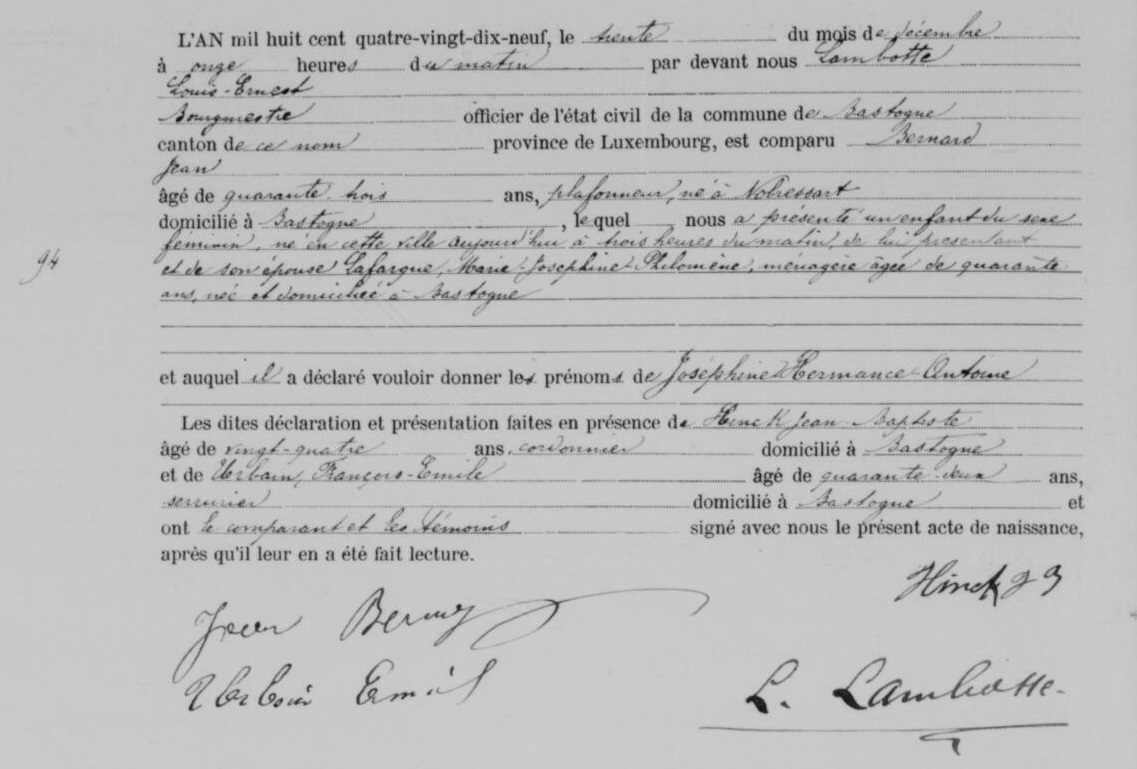 L'AN mil huit cent quatre-vingt-dix-neuf, le trente du mois de décembre
à onze heures du matin par devant nous Lambotte
Louis-Ernest
Bourgmestre officier de l'état civil de la commune de Bastogne
canton de ce nom province de Luxembourg, est comparu Bernard
Jean
âgé de quarante-trois ans, plafonneur, né à Nobressart
domicilié à Bastogne, lequel nous a présenté un enfant du sexe
féminin, né en cette ville aujourd'hui à trois heures du matin, de lui présentant
94
et de son épouse Lafargue, Marie-Joséphine-Philomène, ménagère âgée de quarante
ans, née et domiciliée à Bastogne
et auquel il a déclaré vouloir donner les prénoms de Joséphine-Hermance-Antoine
Les dites déclaration et présentation faites en présence de Hinck Jean-Baptiste
âgé de vingt-quatre ans, cordonnier domicilié à Bastogne
et de Urbain, François-Emile âgé de quarante-deux ans,
serrurier domicilié à Bastogne et
ont le comparant et les témoins signé avec nous le présent acte de naissance,
après qu'il leur en a été fait lecture.
Hinck J B
Jean Bernard
Urbain Emile
L. Lambotte.